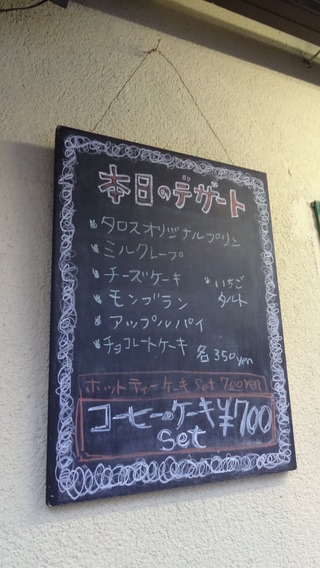 本日のデザート
タロスオリジナルプリン
ミルクレープ
チーズケーキ
いちご
モンブラン
タルト
アップルパイ
チョコレートケーキ
各350yen
ホットティーケーキ set 700yen
コーヒーのケーキ¥700
set